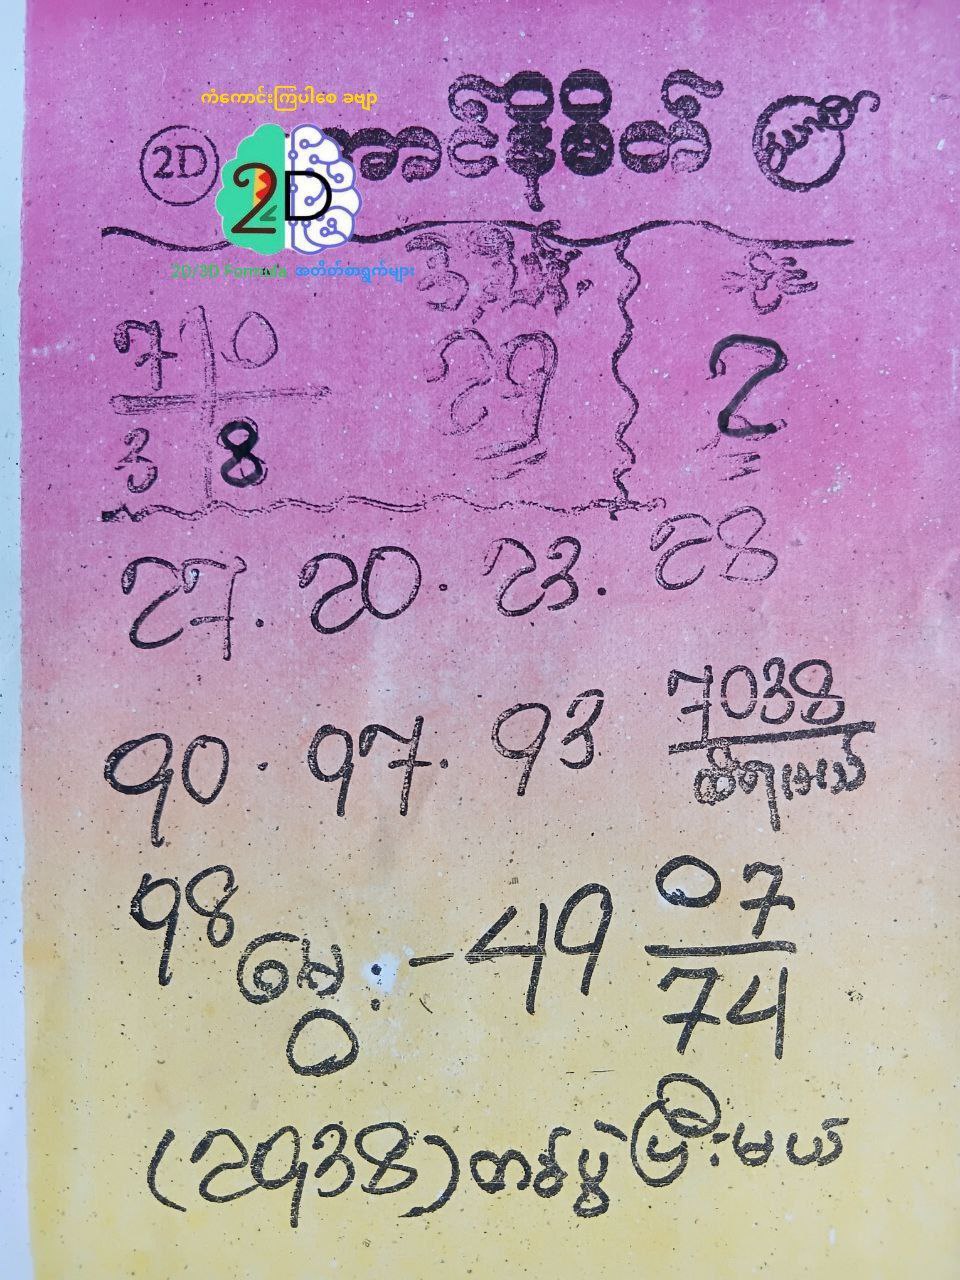 ကံကောင်းကြပါစေ ခဗျာ
2D နိမိတ်
2D
2D/3D Formula အတိတ်စာရွက်များ
7 0
29 2
3 8
27. 20. 23. 28
90. 97. 93 7038
ထိရမယ်
98 မွေး - 49 07
0 74
(2938) တစ်ပွဲပြီးမယ်